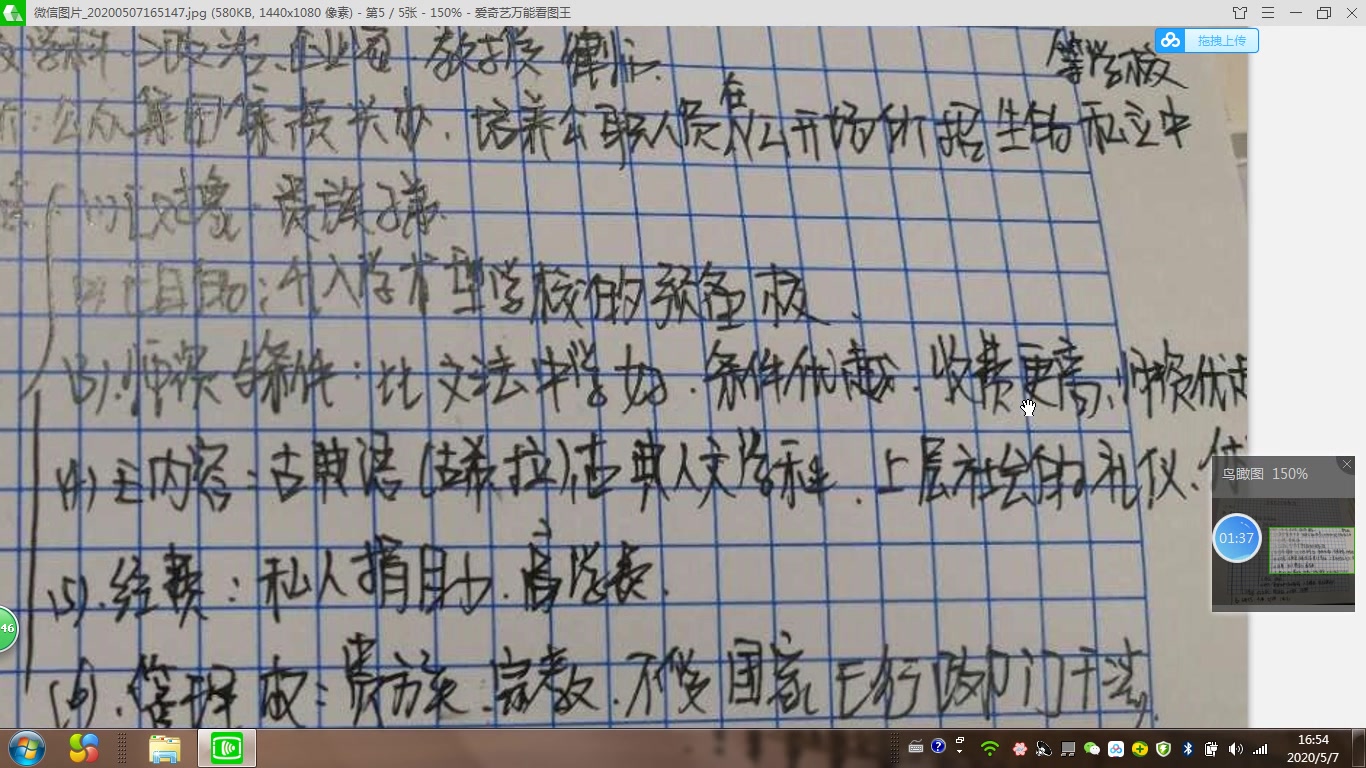 微信图片_20200507165147.jpg (580KB, 1440x1080 像素) - 第5 / 5张 - 150% - 爱奇艺万能看图王
拖拽上传
学科 政法、企业 教授 律师
等学校
公众集团集资兴办，培养公职人员在公开场所招生的私立中
对象：贵族子弟
目的：升入学术型学校的预备校
(3).师资与条件：比文法中学好，条件优越，收费更高，师资优越
(4) 内容：古典语(古希拉)古典人文学科，上层社会的礼仪、
(5).经费：私人捐助、高学费。
(6).管理权：贵族、宗教，不受国家行政部门干涉
鸟瞰图 150%
01:37
46
16:54
2020/5/7